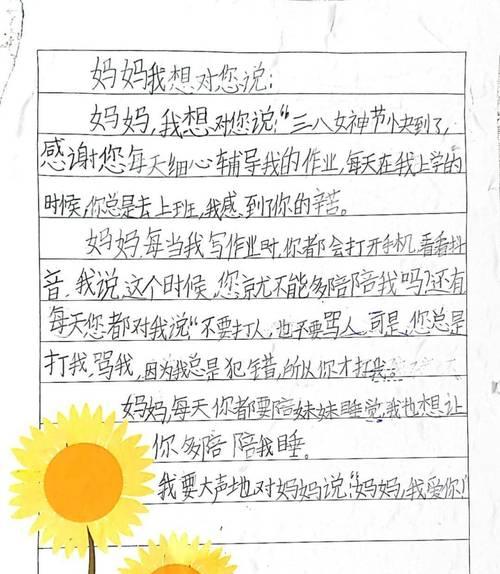 妈妈我想对您说：
妈妈，我想对您说："三八女神节"快到了，
感谢您每天细心辅导我的作业，每天在我上学的
时候，你总是去上班，我感到了你的辛苦。
妈妈，每当我写作业时，你都会打开手机，看看抖
音，我说，这个时候，您就不能多陪陪我吗？还有
每天您都对我说"不要打人，也不要骂人，可是，您总是
打我，骂我，因为我总是犯错，所以你才打我。
妈妈，每天你都要陪妹妹睡觉，我也想让
你多陪陪我睡。
我要大声地对妈妈说："妈妈，我爱你！